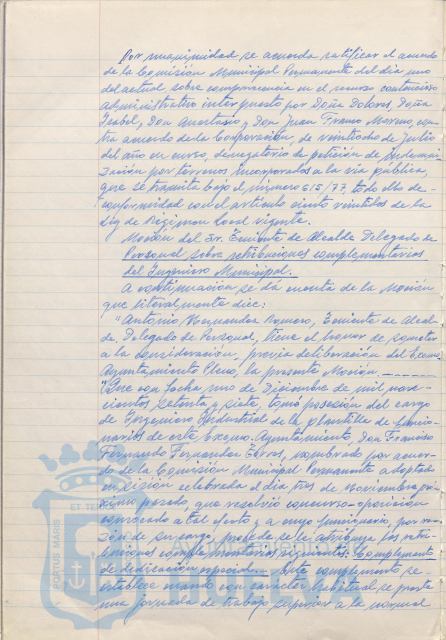 Por unanimidad se acuerda ratificar el acuerdo
de la Comisión Municipal Permanente del día uno
del actual sobre comparecencia en el recurso contencioso
administrativo interpuesto por Doña Dolores, Doña
Isabel, Don Anastasio y Don Juan Franco Moreno, con-
tra acuerdo de la Corporación, de veintiocho de Julio
del año en curso, denegatorio de petición de indemni-
zación por terrenos incorporados a la vía pública,
que se tramita bajo el número 615/77, todo ello de
conformidad con el artículo ciento veintidos de la
Ley de Régimen Local vigente.
Moción del Sr. Teniente de Alcalde Delegado de
Personal sobre retribuciones complementarias
del Ingeniero Municipal.
A continuación se dá cuenta de la Moción
que literalmente dice:
"Antonio Hernandez Romero, Teniente de Alcal-
de Delegado de Personal, tiene el honor de someter
a la consideración, previa deliberación del Excmo.
Ayuntamiento Pleno, la presente Moción.
"Que con fecha uno de Diciembre de mil nove-
cientos setenta y siete, tomó posesión del cargo
de Ingeniero Industrial de la plantilla de funcio-
narios de este Excmo. Ayuntamiento, Don Francisco
Fernando Fernandez, nombrado por acuer-
do de la Comisión Municipal Permanente adoptado
en sesión celebrada el día tres de Noviembre pró-
ximo pasado, que resolvió concurso-oposición
convocado a tal efecto y a cuyo funcionario, por ra-
zón de su cargo, procede se le atribuya las retri-
buciones complementarias siguientes: Complemento
de dedicación especial.- Este complemento se
establece cuando con carácter habitual se presta
una jornada de trabajo superior a la normal
PORTUS MARIS
ET TERRAE